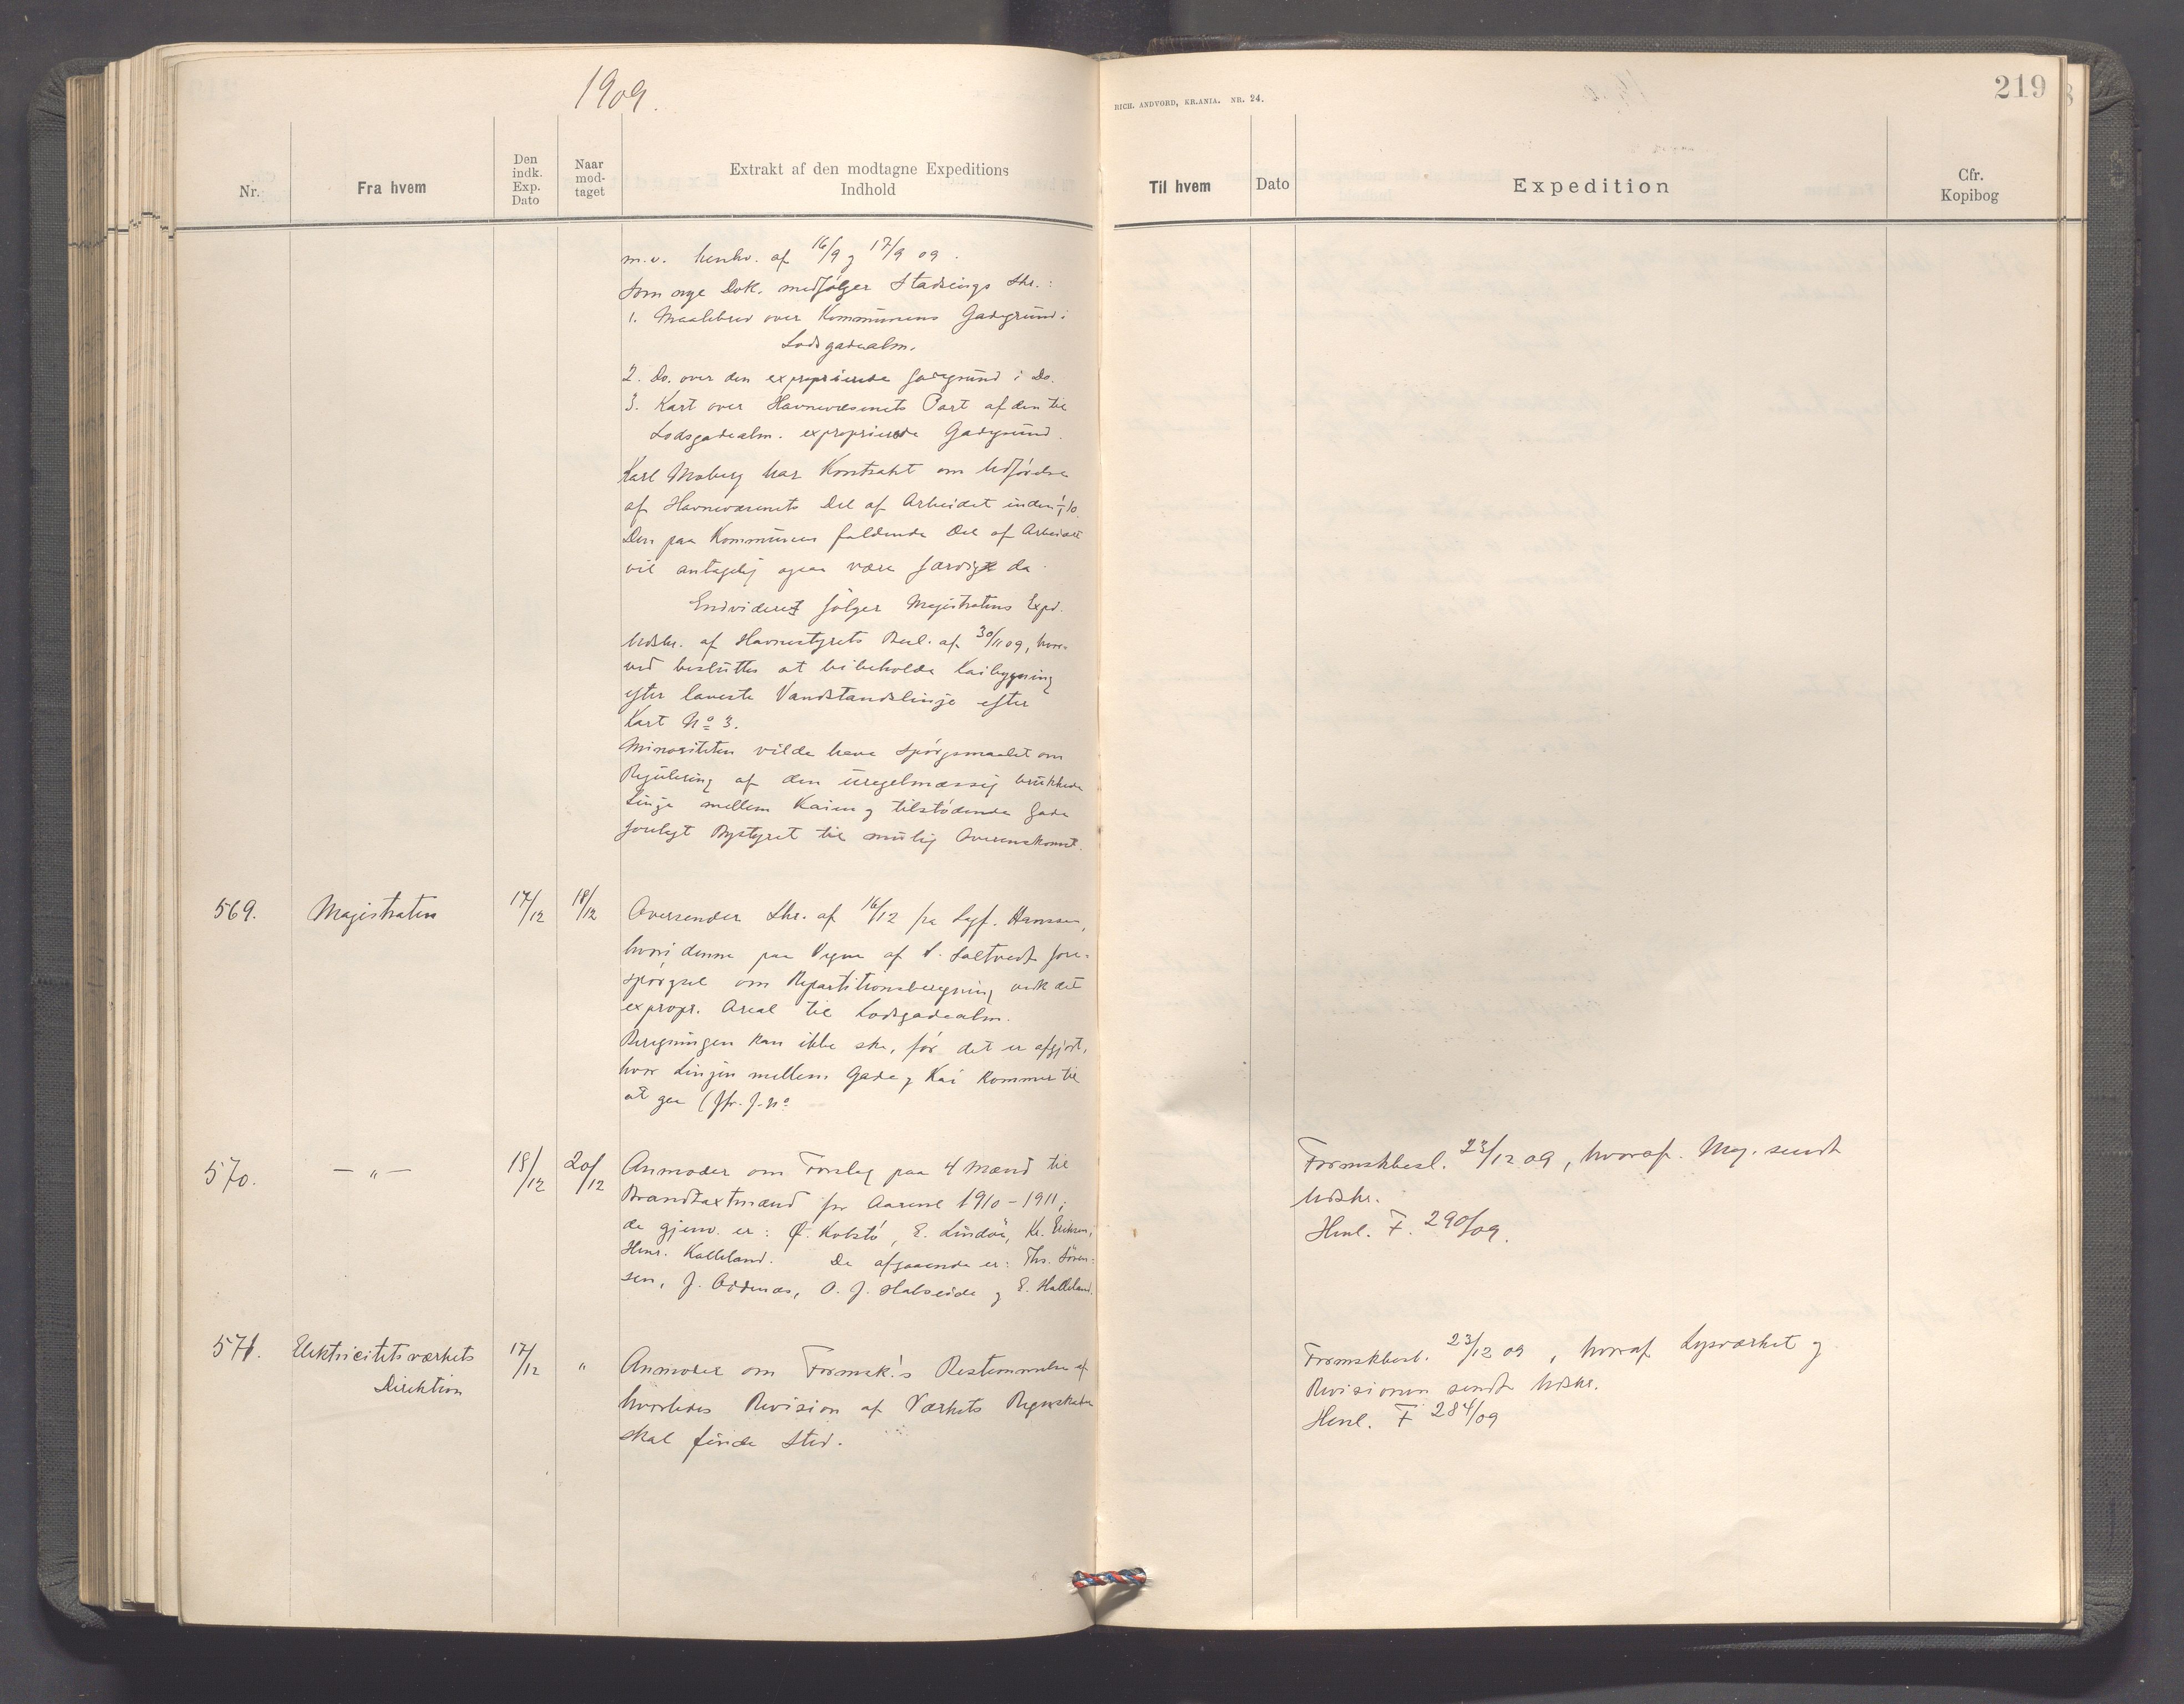 1909.
RICH. ANDVORD, KR.ANIA. NR. 24.
219
Nr.
Fra hvem
Den indk. Exp. Dato
Naar mod- taget
Extrakt af den modtagne Expeditions Indhold
Til hvem
Dato
Expedition
Cfr. Kopibog
m.v. henhv. af 16/9 g 17/9 09.
Som nye Dok. medfølger Stadsings Skr.:
1. Maalebrev over Kommunens Gadegrund i
Lodsgadealm.
2. Do. over den exproprierede Gadegrund i Do.
3. Kart over Havnevæsenets Part af den til
Lodsgadealm. exproprierede Gadegrund.
Karl Moberg har Kontrakt om Udførelse
af Havnevæsenets Del af Arbeidet inden
Den paa Kommunen faldende Del af Arbeidet
vil antagelig ogsaa være færdig da.
Endvidere følger Magistratens Expd.
Udskr. af Havnestyrets Besl. af 30/11 09, hvor-
ved besluttes at bibeholde Kaibygning
efter laveste Vandstandslinje efter
Kart No 3.
Minoriteten vilde have Spørgsmaalet om
Regulering af den uregelmæssig brukkede
Linje mellem Kaien g tilstødende Gade
forelagt Bystyret til mulig Overenskomst.
569. Magistraten 17/12 18/12 Oversender Skr. af 16/12 fra Sagf. Hanssen,
hvori denne paa Vegne af S. Saltvedt fore-
spørgsel om Repartitionsberegning vedk det
expropr. Areal til Lodsgadealm.
Beregningen kan ikke ske, før det er afgjort,
hvor Linjen mellem Gade g Kai kommer til
at gaa (Jfr. J. No
570. — " — 18/12 20/12 Anmoder om Forslag paa 4 Mænd til
Brandtaxtmænd for Aarene 1910 - 1911;
de gjenv. er: Ø. Kolstø, E. Lindøe, Kr. Eriksen,
Henr. Kalleland. De afgaaende er: Ths. Søren-
sen, J. Oddenæs, O. J. Halseide g E. Halleland.
Formskbesl. 23/12 09, hvoraf Mag. sendt
Udskr.
Henl. F. 290/09.
571. Elektricitetsværkets 17/12 " Anmoder om Formsk.'s Bestemmelse af
Direktion
hvorledes Revision af Værkets Regnskaber
skal finde Sted.
Formskbesl. 23/12 09, hvoraf Lysværket g
Revisionen sendt Udskr.
Henl. F 284/09